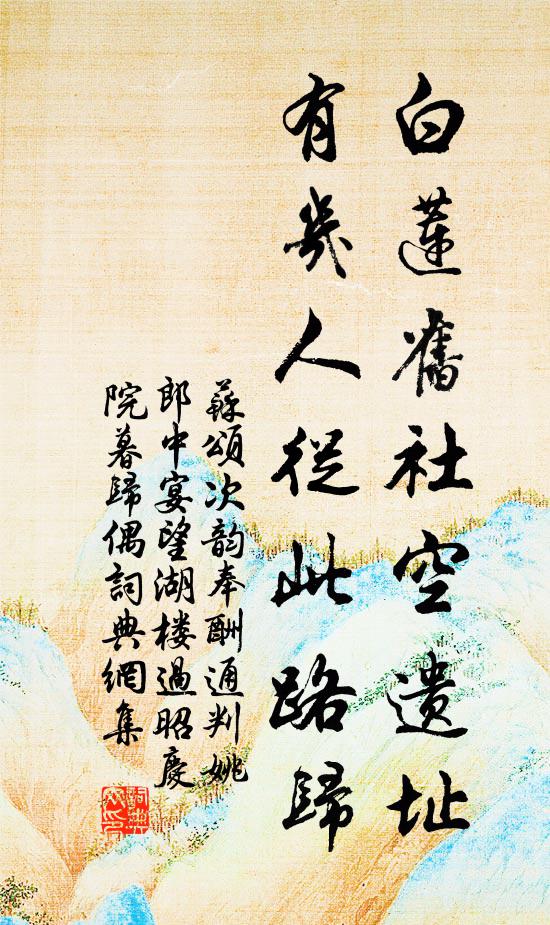 白蓮舊社空遗址
有幾人從此路歸
蘇頌次韵奉酬通判姚
郎中宴望湖楼過昭慶
院暮歸偶詞典網集